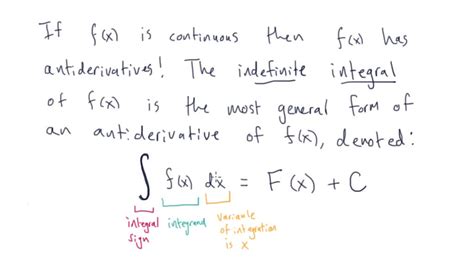 If f(x) is continuous then f(x) has
antiderivatives! The indefinite integral
of f(x) is the most general form of
an antiderivative of f(x), denoted:
∫ f(x) dx = F(x) + C
integral sign
integrand
variable of integration is x